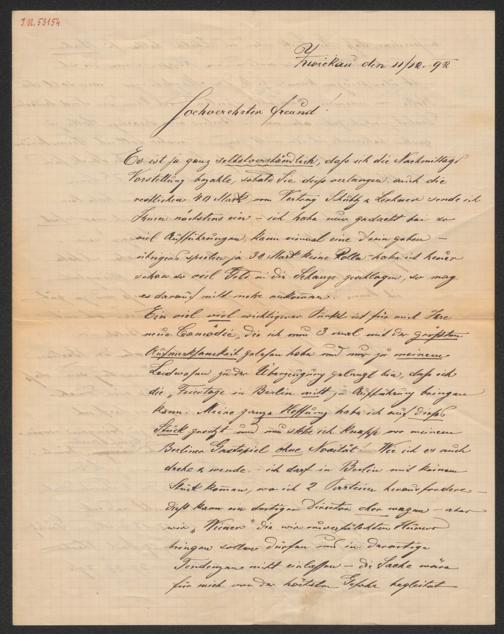 I.N. 53154
Zwickau den 11/12. 92
Hochverehrter Freund!
Es ist ja ganz selbstverständlich, daß ich die Nachmittags
Vorstellung bezahle, sobald Sie dieß verlangen, auch die
restlichen 40 Mark vom Vertrag Schütz & sende ich
Ihnen nächstens ein – ich habe nur gedacht bei so
viel Aufführungen, kann einmal eine drein gehen –
übrigens spielen ja 30 Mark keine Rolle – habe ich heuer
schon so viel in die Schanze geschlagen, so mag
es darauf nicht mehr ankommen.
Ein viel viel wichtigerer Punkt ist für mich Ihre
neue Comödie, die ich nun 3 mal mit der größten
Aufmerksamkeit gelesen habe und nur zu meinem
Leidwesen zu der Überzeugung gelangt bin, daß ich
die in Berlin nicht zu Aufführung bringen
kann. Meine ganze Hoffnung habe ich auf dieses
Stück gesetzt und nun stehe ich knapp vor meinem
Berliner Gastspiel ohne Novität. Wie ich es auch
drehe & wende – ich darf in Berlin mit keinem
Stück kommen, wo ich 2 Parteien herausfordere –
dieß kann ein dortiger Direktor eher wagen – aber
wir "Wiener" die wir unverfälschten Humor
bringen sollen & dürfen uns in derartige
Tendenzen nicht einlassen – die Sache wäre
für mich von der höchsten Gefahr begleitet